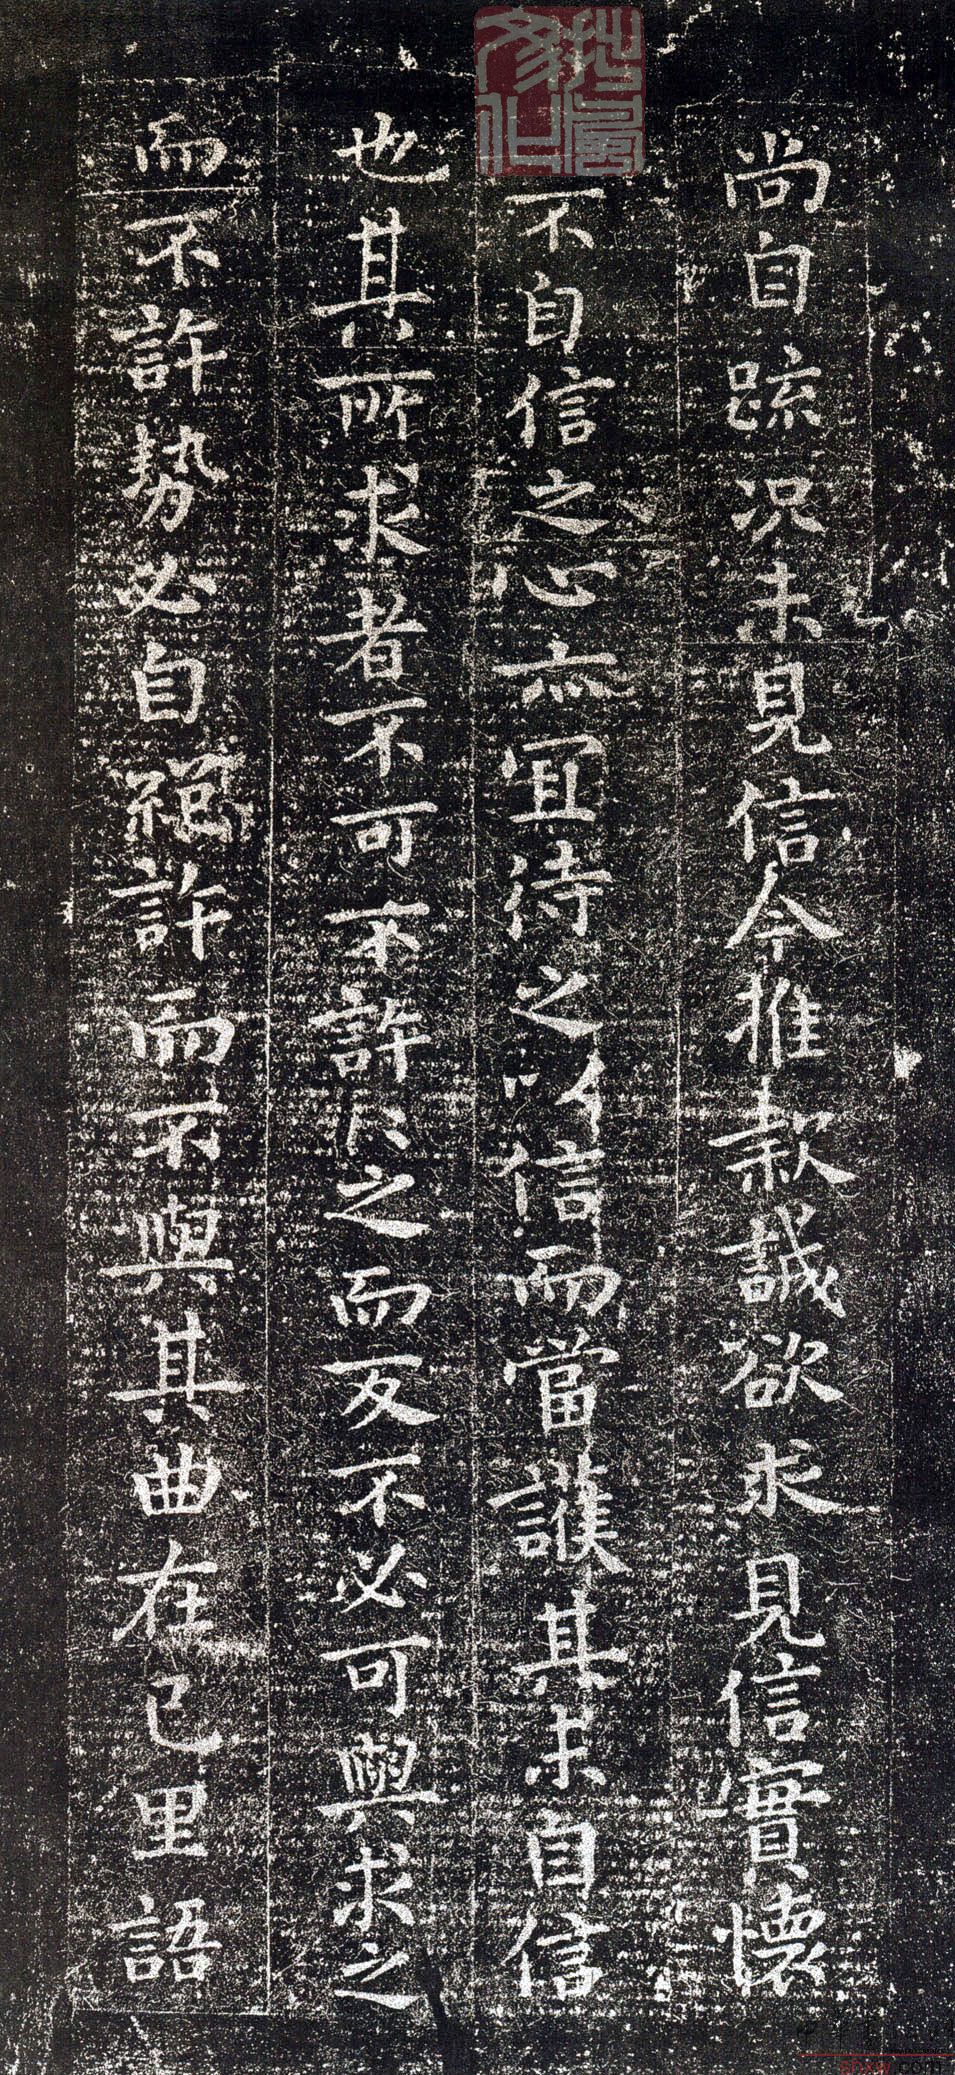 尚自踈况未見信今推款誠欲求見信實懷
不自信之心亦宜待之以信而當護其未自信
也其所求者不可不許許之而反不必可與求之
而不許勢必自絕許而不與其曲在己里語
shxw.com